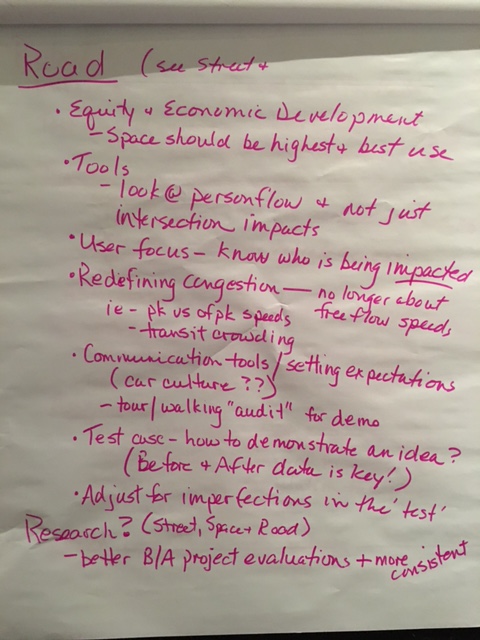 Road (see Street +
• Equity + Economic Development
- Space should be highest + best use
• Tools
- look @ personflow + not just
intersection impacts
• User focus - know who is being impacted
• Redefining congestion — no longer about
free flow speeds
ie - pk vs ofpk speeds
- transit crowding
• Communication tools / setting expectations
(car culture ??)
- tour/walking "audit" for demo
• Test case - how to demonstrate an idea?
(Before + After data is key!)
• Adjust for imperfections in the 'test'
Research? (Street, Space + Road)
- better B/A project evaluations + more
consistent